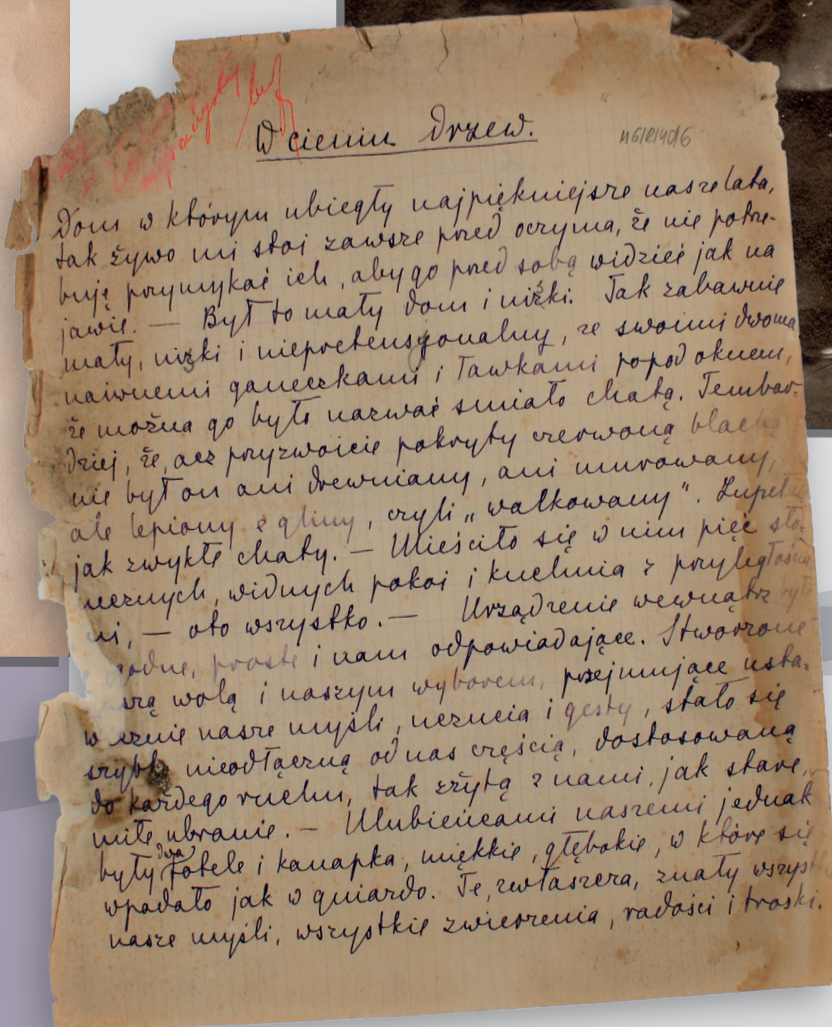 W cieniu drzew.
Dom w którym ubiegły najpiękniejsze nasze lata,
tak żywo mi stoi zawsze przed oczyma, że nie potrze-
buję przymykać ich, aby go przed sobą widzieć jak na
jawie. — Był to mały dom i nizki. Tak zabawnie
mały, nizki i niepretensyonalny, ze swoimi dwoma
naiwnemi ganeczkami i ławkami popod oknem,
że można go było nazwać śmiało chatą. Tembar-
dziej, że, acz przyzwoicie pokryty czerwoną blachą
nie był on ani drewniany, ani murowany,
ale lepiony z gliny, czyli „wałkowany”. Zupełnie
jak zwykłe chaty. — Mieściło się w nim pięć sło-
necznych, widnych pokoi i kuchnia z przyległościa
mi, — oto wszystko. — Urządzenie wewnątrz było
proste i nam odpowiadające. Stworzone
wolą i naszym wyborem, przejmujące usta-
wicznie nasze myśli, uczucia i gesty, stało się
szybko nieodłączną od nas częścią, dostosowaną
do każdego ruchu, tak zżytą z nami, jak stare,
miłe ubranie. — Ulubieńcami naszemi jednak
były dwa fotele i kanapka, miękkie, głębokie, w które się
wpadało jak w gniazdo. Te, zwłaszcza, znały wszyst
nasze myśli, wszystkie zwierzenia, radości i troski.